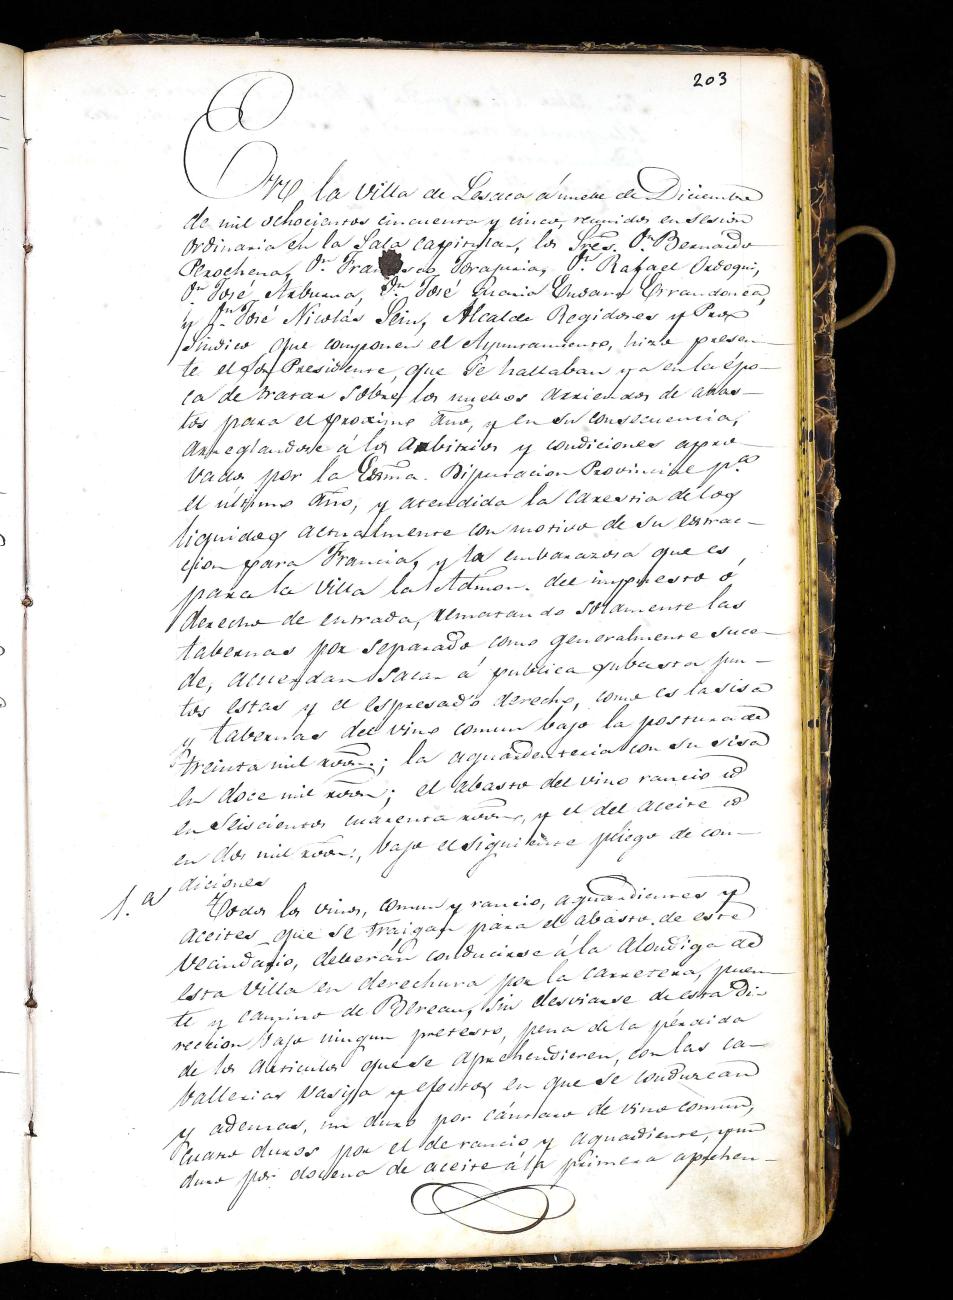 203
En la Villa de Lesaca á nuebe de Diciembre
de mil ochocientos cincuenta y cinco, reunidos en sesion
ordinaria en la Sala capitular, los Sres. Dn. Bernardo
Perochena, Dn. Francisco Torapuria, Dn. Rafael Ordoqui,
Dn José Anbuena, Dn. José Maria Endara Errandonea,
y Dn. José Nicolás Pein, Alcalde Regidores y Pror
Sindico que componen el Ayuntamiento, hizo presen-
te el Sor Presidente, que se hallaban ya en la épo-
ca de tratar sobre los nuebos arriendos de abas-
tos para el proximo año, y en su consecuencia,
arreglandose á los arbitrios y condiciones apro-
vados por la Exma. Diputacion Provincial pa.
el último año, y atendida la carestia de los
liquidos actualmente con motivo de su estrac-
cion para Francia, y la embarazosa que es
para la Villa la Admon. del impuesto ó
derecho de entrada, rematando solamente las
tabernas por separado como generalmente suce-
de, acuerdan sacar á publica subasta jun-
tos estas y el espresado derecho, como es la sisa
y tabernas del vino comun bajo la postura de
treinta mil rvon.; la aguardenteria con su sisa
en doce mil rvon; el abasto del vino rancio id
en seiscientos cuarenta rvon., y el del aceite id
en dos mil rvon., bajo el siguiente pliego de con-
diciones
1.a Todos los vinos, comun y rancio, aguardientes y
aceites que se traigan para el abasto de este
vecindario, deberán conducirse á la alondiga de
esta Villa en derechura por la carretera, puen-
te y camino de Berean, sin desviarse de esta di-
reccion bajo ningun pretesto, pena de la pérdida
de los articulos que se aprehendieren, con las ca-
vallerias vasija y efectos en que se conduzcan
y ademas, un duro por cántaro de vino comun,
cuatro duros por el de rancio y aguardiente, y un
duro por docena de aceite á la primera aprehen-